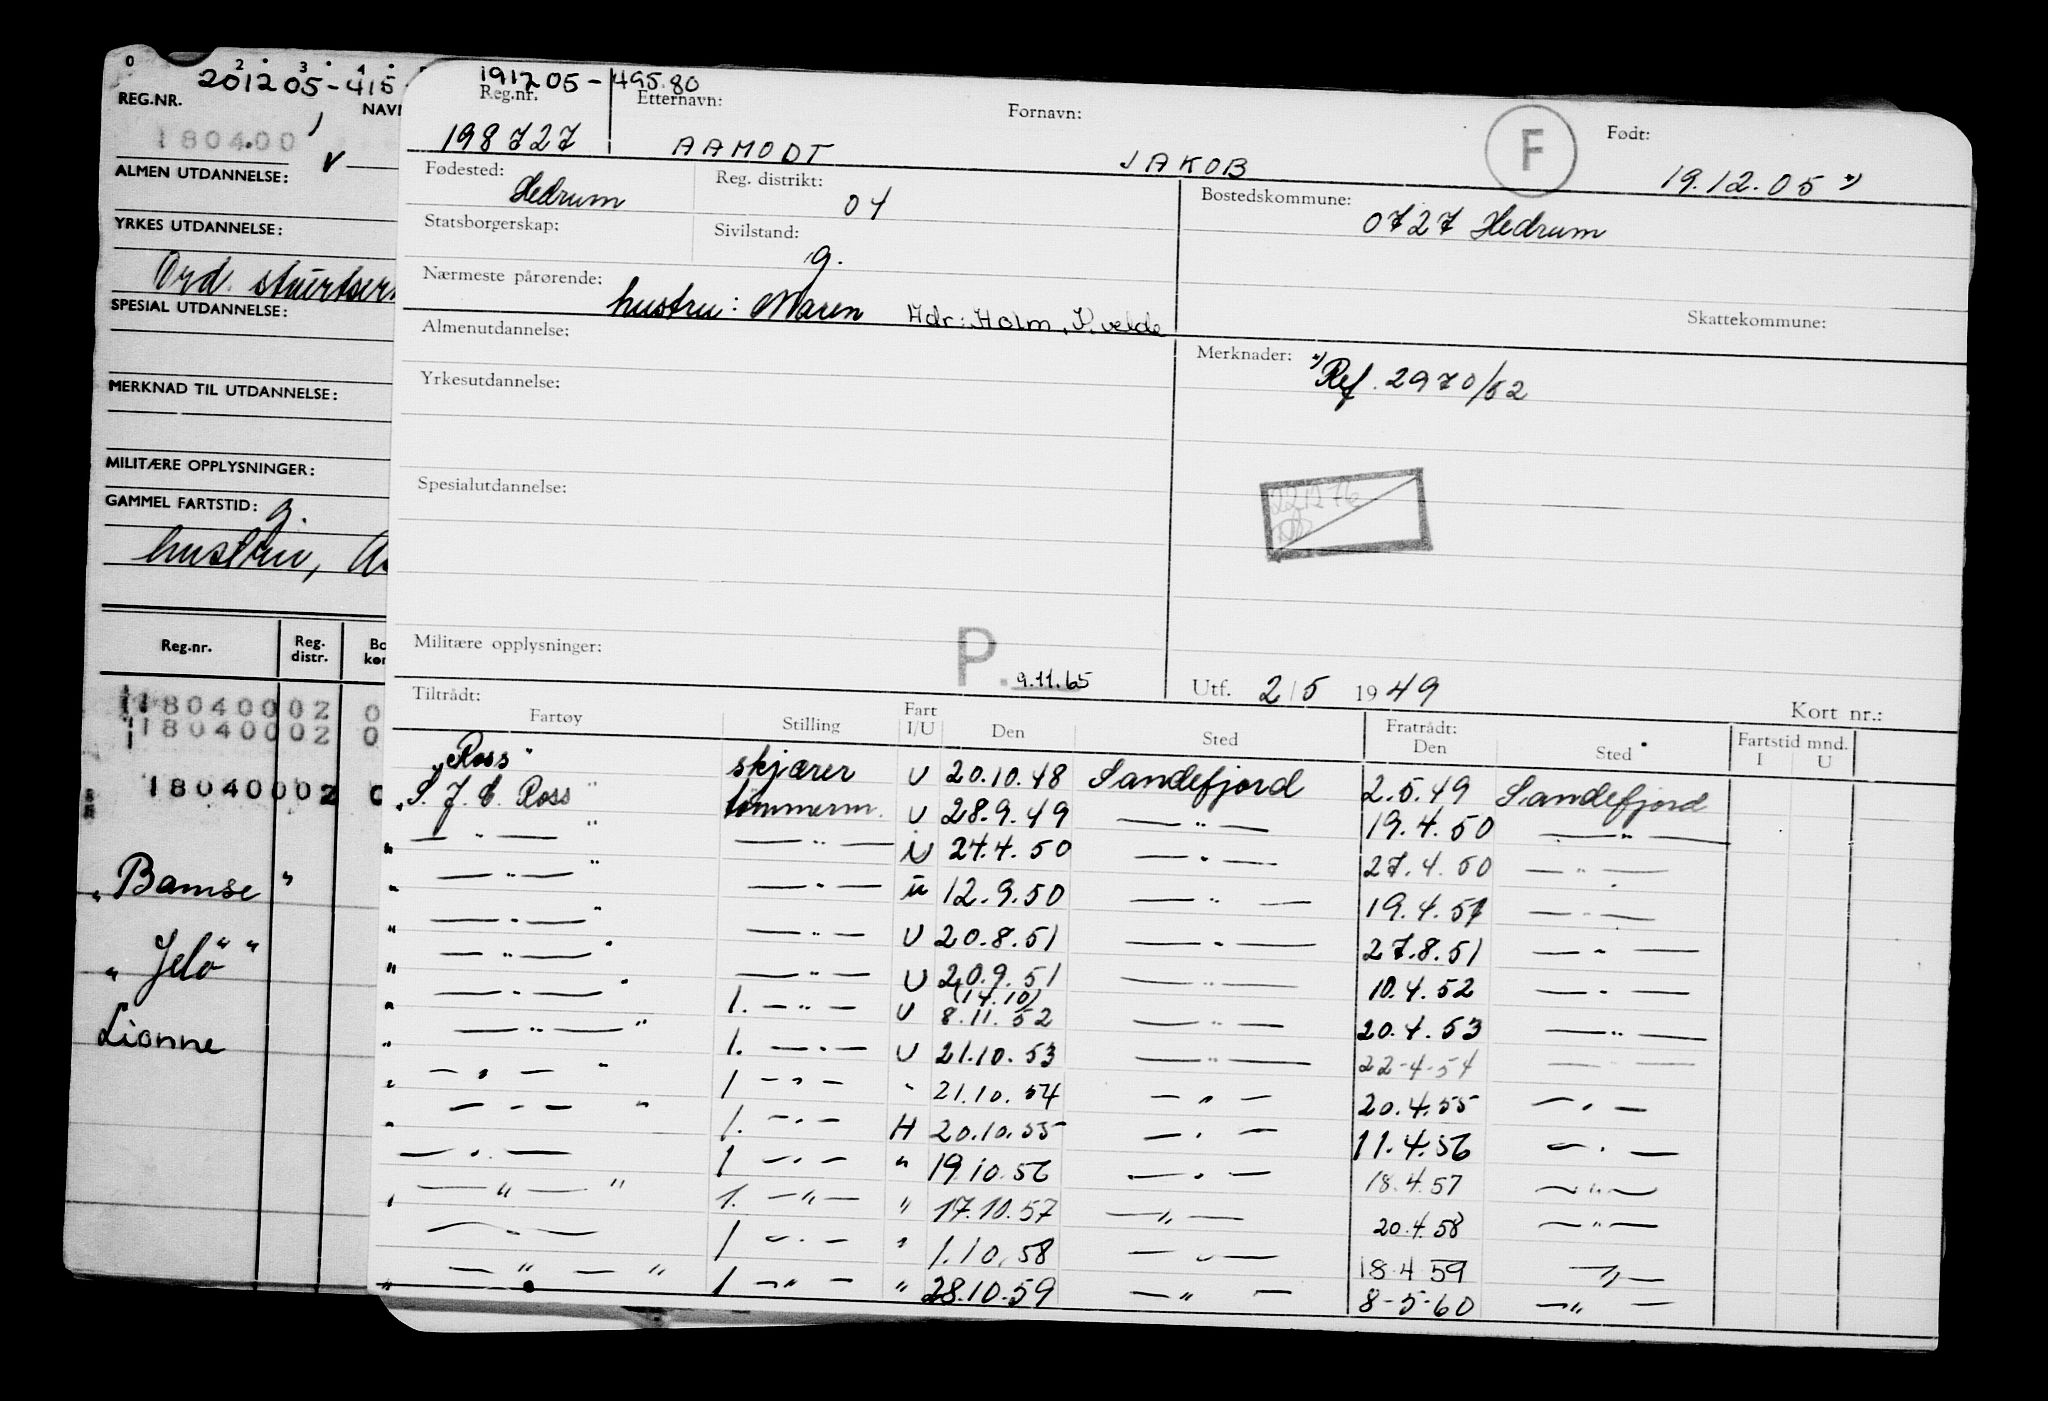 0 2 3 4
201205-415
REG.NR. NAV
180400
ALMEN UTDANNELSE:
YRKES UTDANNELSE:
Ord. stuertser
SPESIAL UTDANNELSE:
MERKNAD TIL UTDANNELSE:
MILITÆRE OPPLYSNINGER:
GAMMEL FARTSTID: g.
hustru, A
Reg.nr. Reg. distr. Bo kom
180400 02 0
180400 02 0
180400 02 0
"Bamse"
"Jelö"
Lionne
191205-495.80
Reg.nr. Etternavn: Fornavn: F Født:
198727 AAMODT JAKOB 19.12.05 *)
Fødested: Reg. distrikt: Bostedskommune:
Hedrum 04 0727 Hedrum
Statsborgerskap: Sivilstand:
g.
Nærmeste pårørende: Skattekommune:
hustru: Maren Adr: Holm, Kvelde
Almenutdannelse: Merknader: *) Ref. 2970/52
Yrkesutdannelse:
Spesialutdannelse:
Militære opplysninger: P. 9.11.65 Utf. 2/5 1949 Kort nr.:
Tiltrådt: Fratrådt: Fartstid mnd.
Fartøy Stilling Fart I/U Den Sted Den Sted I U
"Ross" skjærer U 20.10.48 Sandefjord 2.5.49 Sandefjord
"S. J. C. Ross" tømmerm. U 28.9.49 —"— 19.4.50 —"—
" —"— " —"— U 24.4.50 —"— 27.4.50 —"—
" —"— " —"— u 12.9.50 —"— 19.4.51 —"—
" —"— " —"— U 20.8.51 —"— 27.8.51 —"—
" —"— " —"— U 20.9.51 —"— 10.4.52 —"—
" —"— " 1. —"— U (14.10) 8.11.52 —"— 20.4.53 —"—
" —"— " 1. —"— U 21.10.53 —"— 22-4-54 —"—
" —"— " 1 —"— " 21.10.54 —"— 20.4.55 —"—
" —"— " 1. —"— H 20.10.55 —"— 11.4.56 —"—
—"— 1 —"— " 19.10.56 —"— 18.4.57 —"—
" —"— " 1. —"— " 17.10.57 —"— 20.4.58 —"—
—"— 1 —"— " 1.10.58 —"— 18.4.59 —"—
" —"— " 1 —"— " 28.10.59 —"— 8-5-60 —"—